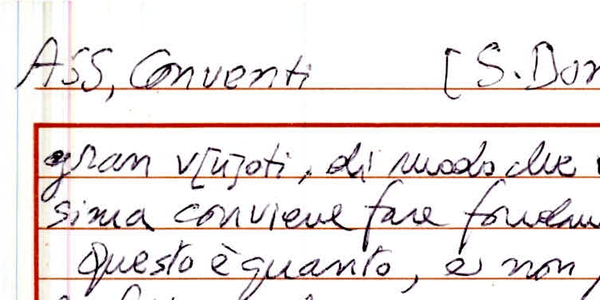 ASS, Conventi [S. Dom
gran v[u]oti, di modo che
sima conviene fare fondam
Questo è quanto, e non